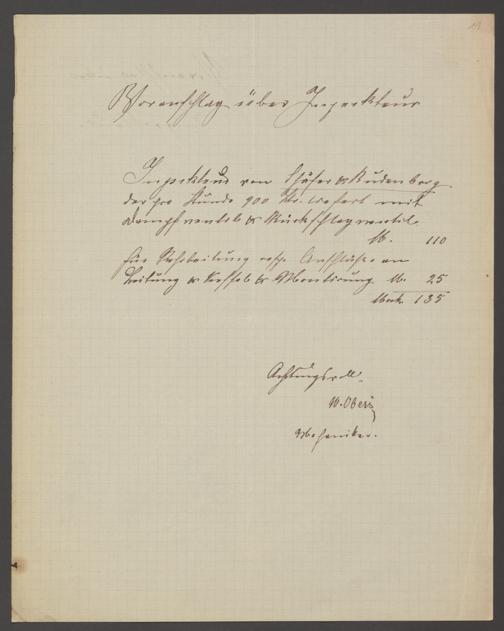 Voranschlag über Injecteur
Injecteur von Schäfer & Budenberg
der pro Stunde 900 Ltr. liefert mit
Dampfventil & Rückschlagventil.
M. 110
für Rohrleitung resp. Anschluss an
Leitung & Kessel & Montirung M. 25
Mark. 135
Achtungsvoll.
W. Obers
Mechaniker.